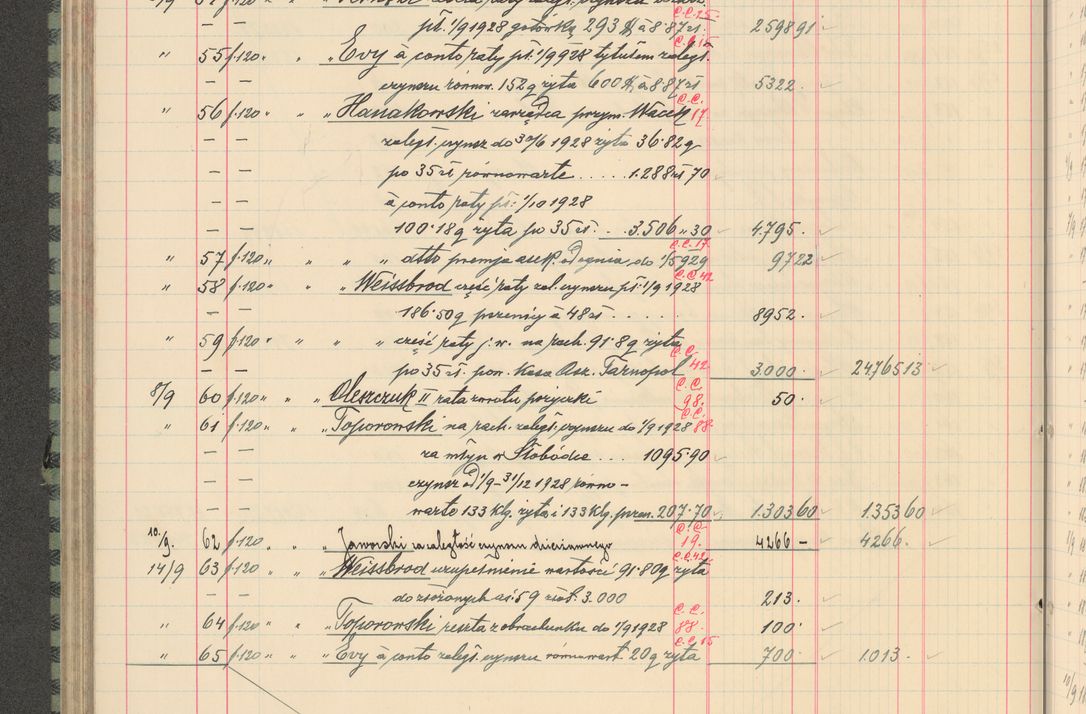 – pł. 1/9 1928 gotówką 293 $ à 8·87 zł. 2598 91
" 55 f·120 " " " Evy à conto raty pł. 1/9 928 tytułem zaległ. C.C. 15
– – czynszu równow. 152 q żyta 600 $ à 8·87 zł 5322 ·
" 56 f·120 " " " Hanakowski zarządca przym. Wacek C.C. 17
– – zaległ. czynsz do 30/6 1928 żyta 36·82 q
– – po 35 zł równowarte ..... 1.288 zł 70
– – à conto raty pł: 1/10 1928
– – 100·18 q żyta po 35 zł. .. 3.506 " 30 4.795 ·
" 57 f·120 " " " " dtto premja asek. od ognia, do 1/5 929 C.C. 17 97 22
" 58 f·120 " " " Weissbrod część raty zal. czynszu pł. 1/9 1928 C.C. 42
– – 186·50 q pszenicy à 48 zł ..... 8952 ·
" 59 f·120 " " " " część raty j.w. na rach. 91·8 q żyta
– – po 35 zł. pow. Kasa Osz. Tarnopol C.C. 42 3000 · 24765 13
8/9 60 f·120 " " " Oleszczuk II rata zwrotu pożyczki C.C. 98. 50 ·
" 61 f·120 " " " Toporowski na rach. zaległ. czynszu do 1/9 1928 C.C. 88
– – za młyn w Słobódce ... 1095·90
– – czynsz od 1/9 – 31/12 1928 równo-
– – warto 133 klg. żyta i 133 klg. pszen. 207·70 1.303 60 1.353 60
10/9. 62 f·120 " " " Jaworski za zaległość czynszu dzierżawnego C.C. 19. 4266 – 4266 ·
14/9 63 f·120 " " " Weissbrod uzupełnienie wartości 91·80 q żyta C.C. 42
– – do złożonych as: 59 złot. 3.000 213 ·
" 64 f·120 " " " Toporowski reszta z obrachunku do 1/9 1928 C.C. 88. 100 ·
" 65 f·120 " " " Evy à conto zaległ. czynszu równowart. 20 q żyta C.C. 15 700 · 1.013 ·